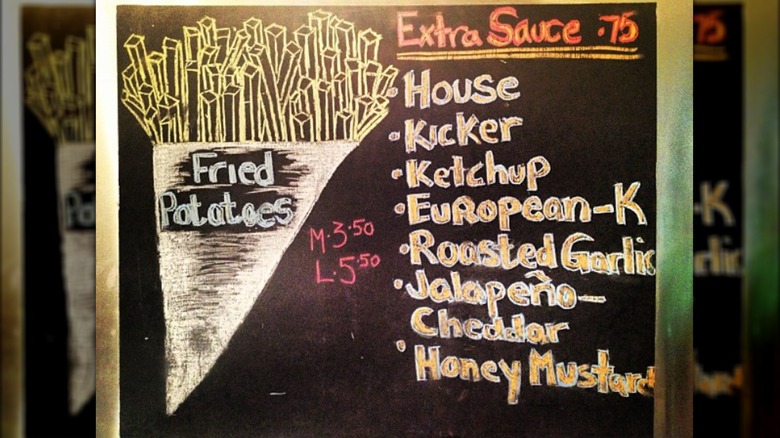 Fried
Potatoes
M.3.50
L.5.50
Extra Sauce .75
• House
• Kicker
• Ketchup
• European-K
• Roasted Garlic
• Jalapeño-
Cheddar
• Honey Mustard